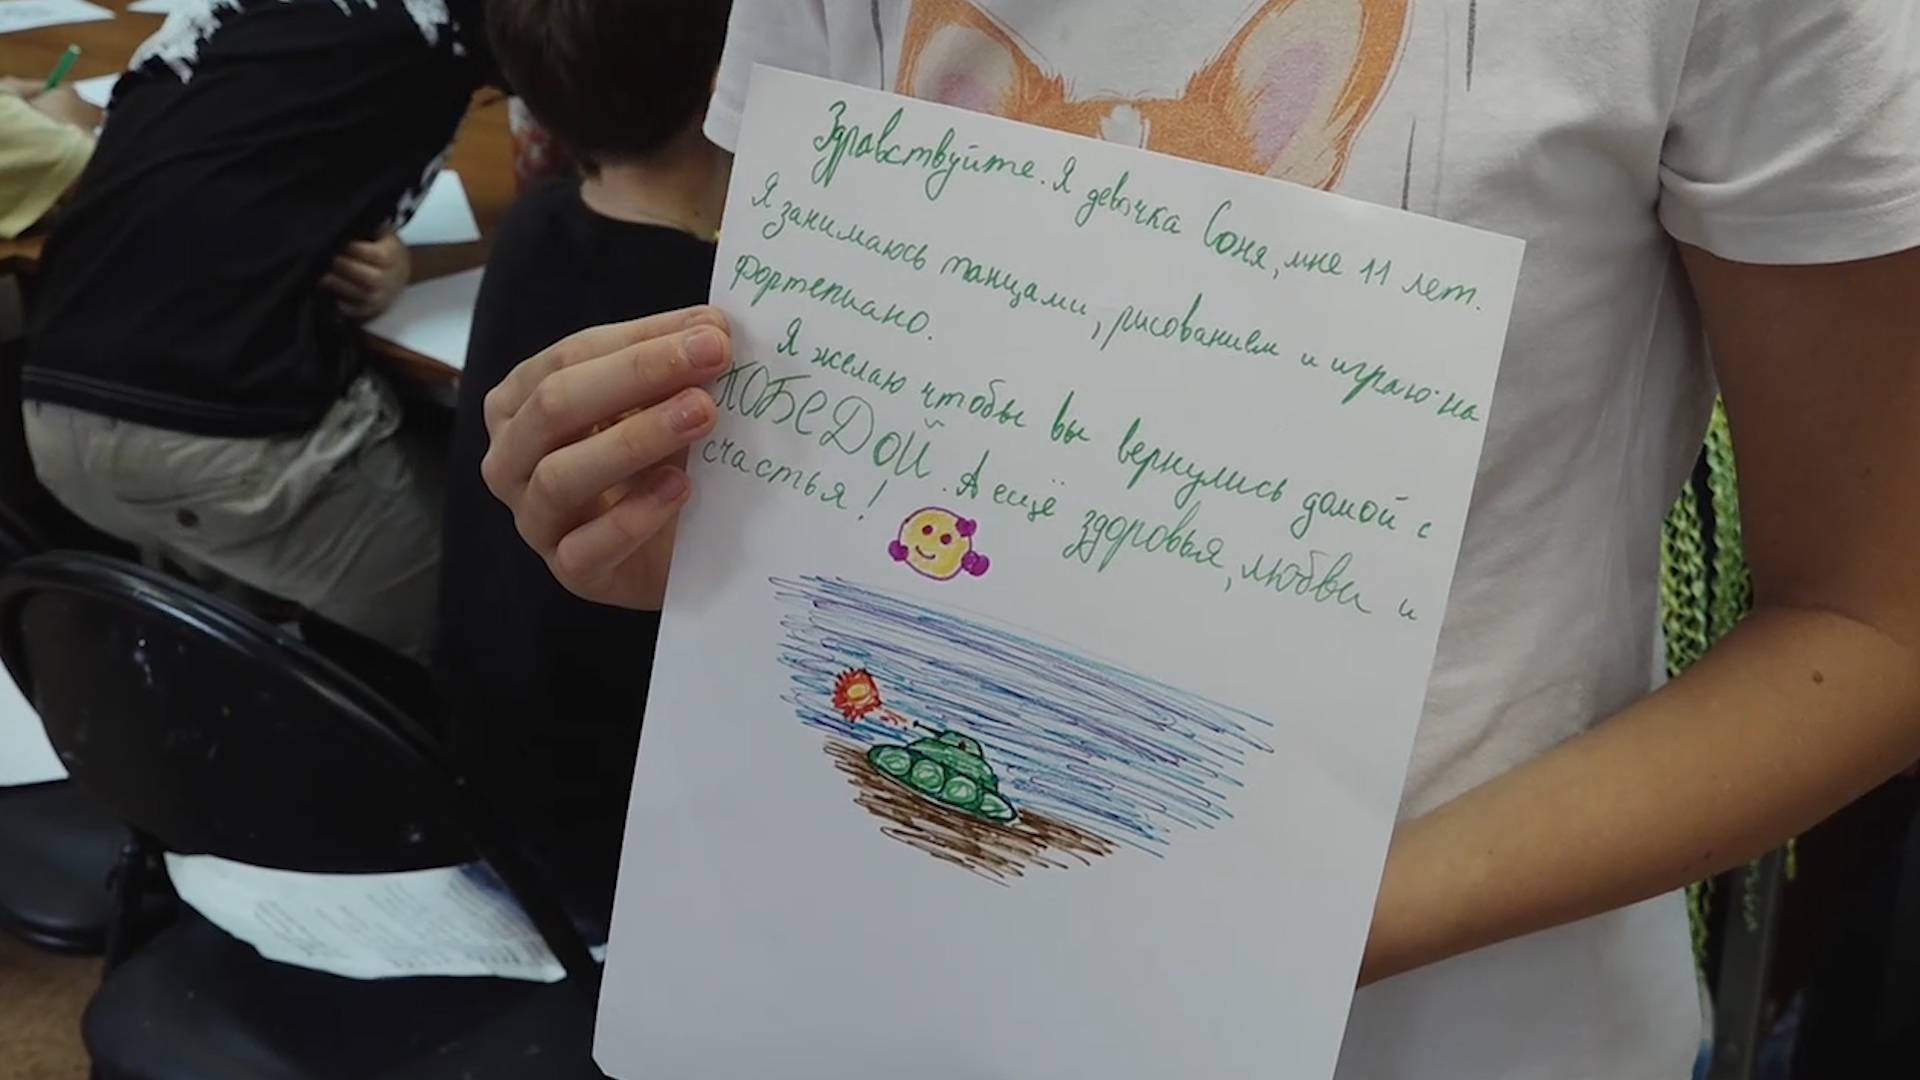 Здравствуйте. Я девочка Соня, мне 11 лет.
Я занимаюсь танцами, рисованием и играю на
фортепиано.
Я желаю чтобы вы вернулись домой с
ПОБЕДОЙ. А ещё здоровья, любви и
счастья!